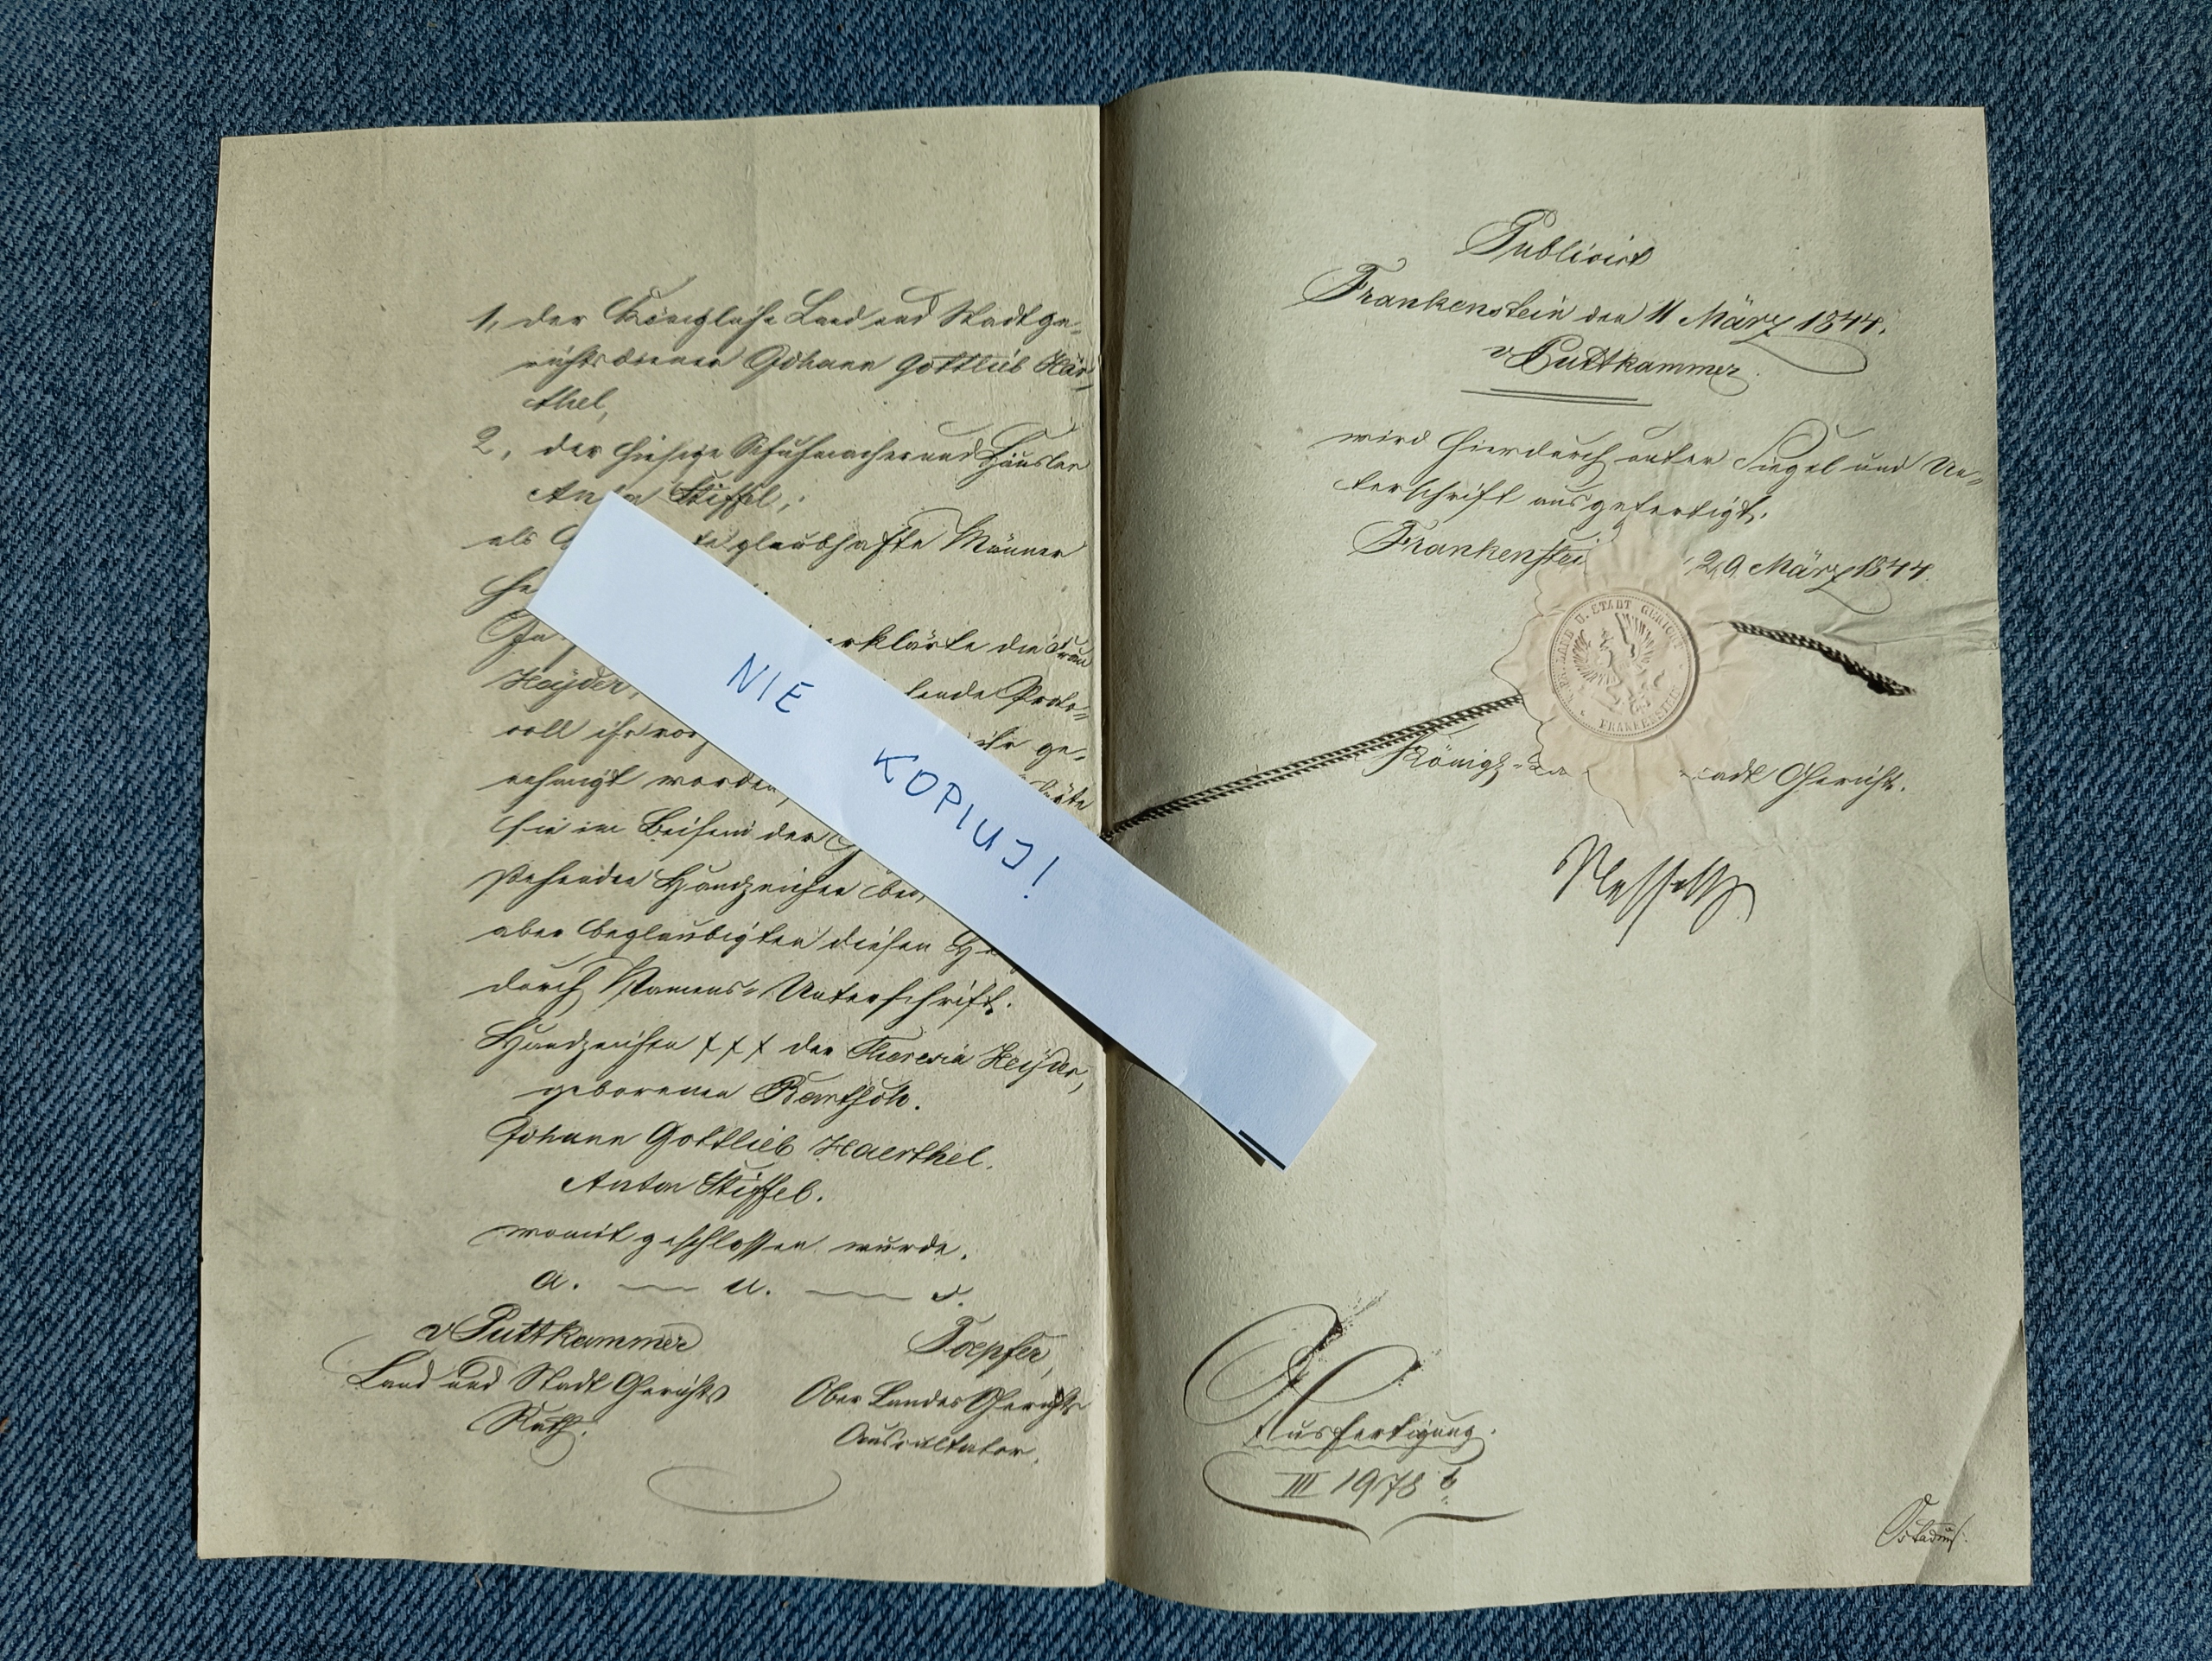 1, der Königliche Land und Stadtge-
richtsdiener Johann Gottlieb Här-
thel,
2, der hiesige Schuhmacher und Häusler
Anton Stiffel;
als glaubhafte Männer
erklärte die Frau
Heyder, Proto-
coll ihr ihr ge-
nehmigt worden,
sie im Beisein der
stehenden Handzeichen
aber beglaubigten diesen
durch Namens-Unterschrift.
Handzeichen +++ der Theresia Heyder,
geborenen
Johann Gottlieb Haerthel.
Anton Stiffel.
womit geschlossen wurde.
a. — u. — s.
v Puttkammer Toepfer,
Land und Stadt Gerichts Ober Landes Gerichts
Rath. Auscultator.
NIE
KOPIUJ!
Publicirt
Frankenstein den 11 März 1844.
v Puttkammer
wird hierdurch unter Siegel und Un-
terschrift ausgefertigt.
Frankenstei 29. März 1844.
LAND U. STADT GERICHT
FRANKENSTEIN
Königl. tadt Gericht.
Ausfertigung.
III 1978 b